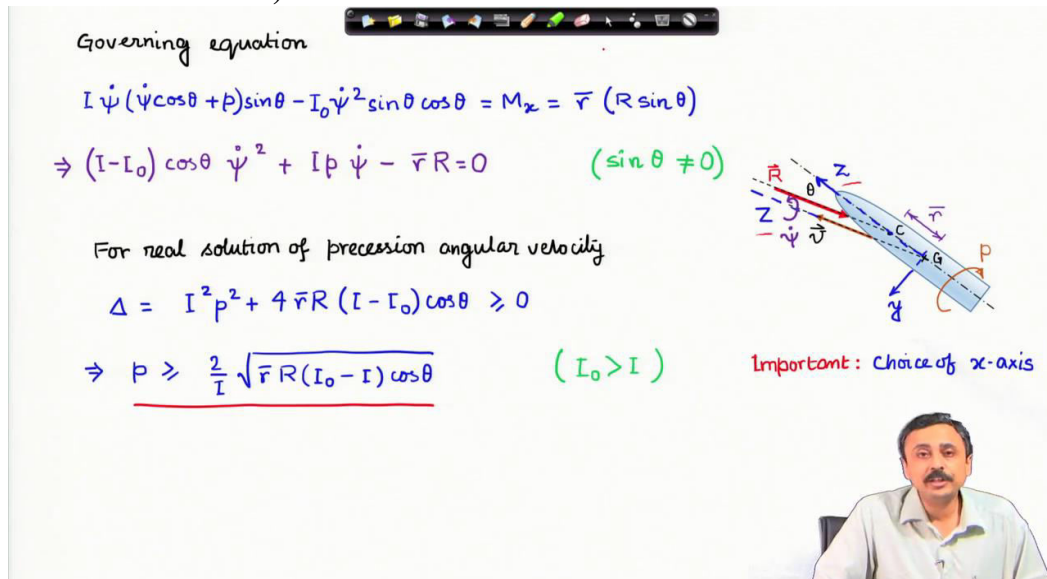 Governing equation
I ψ̇ (ψ̇ cosθ + p) sinθ - I₀ ψ̇² sinθ cosθ = Mₓ = r̄ (R sinθ)
⇒ (I-I₀) cosθ ψ̇² + Ip ψ̇ - r̄ R = 0 (sin θ ≠ 0)
For real solution of precession angular velocity
Δ = I²p² + 4 r̄R (I - I₀) cosθ ≥ 0
⇒ p ≥ 2/I √(r̄ R (I₀ - I) cosθ) (I₀ > I)
R⃗
θ
z
Z
ψ̇
v⃗
r̄
C
G
p
y
Important: Choice of x-axis